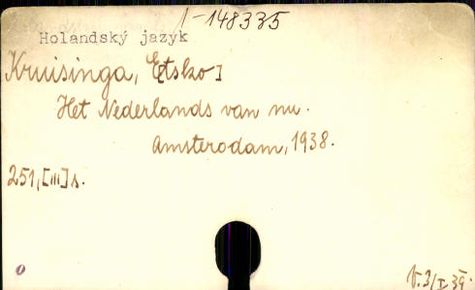 1-148335
Holandský jazyk
Kruisinga, E[tsko]
Het Nederlands van nu.
Amsterodam, 1938.
251, [III] s.
V. 3/I 39.